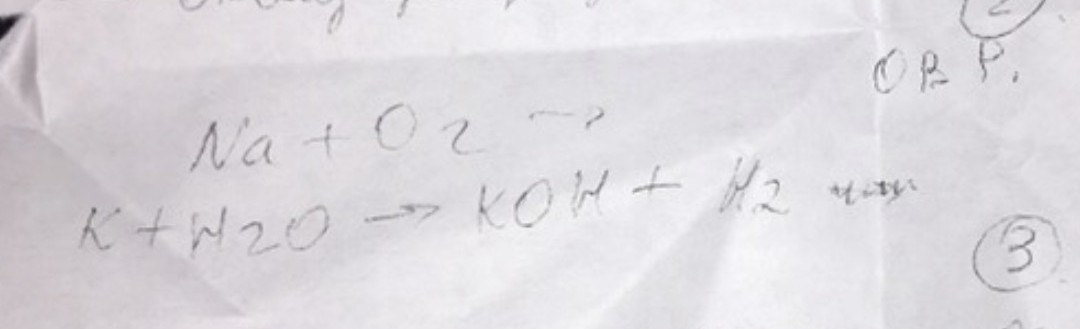 2
ОВ Р.
Na + O2 →
K + H2O → KOH + H2
3